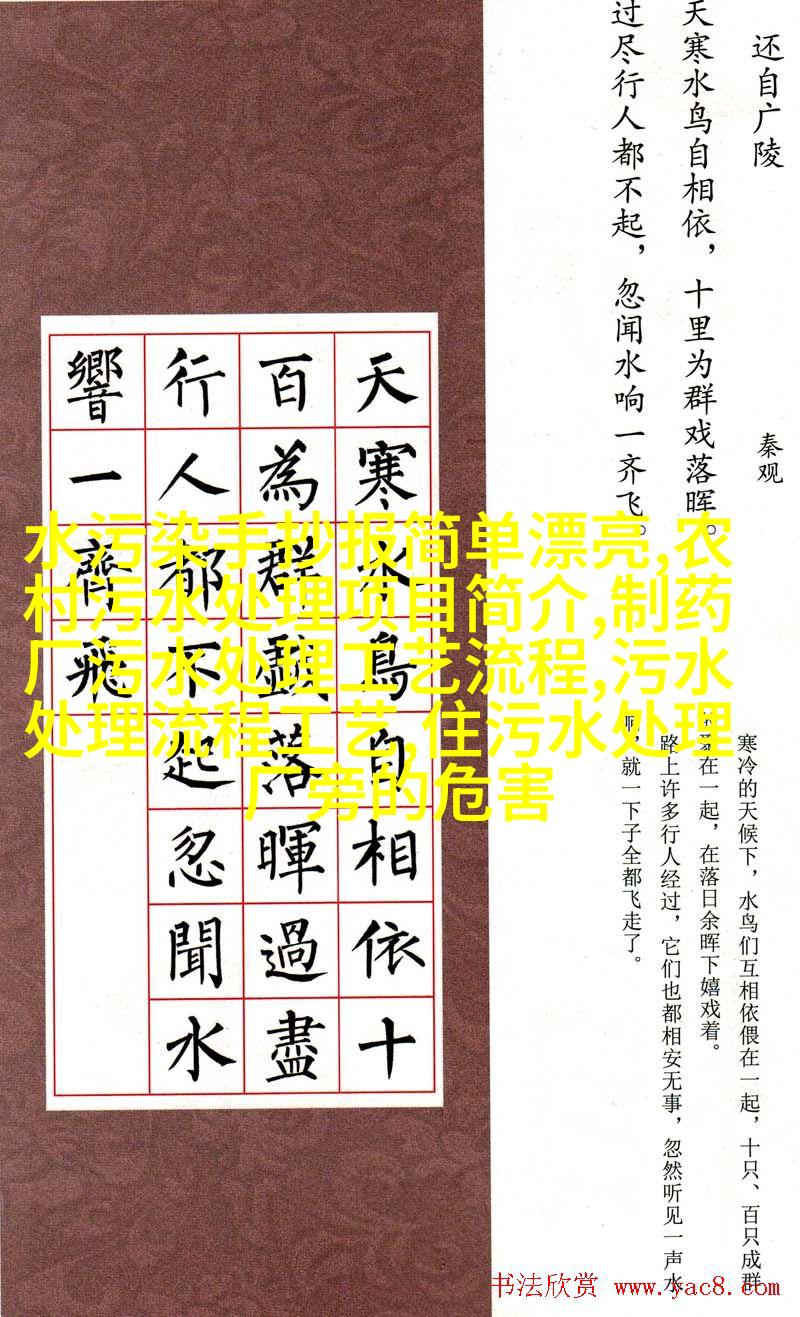 还自广陵
秦观
天寒水鸟自相依，十里为群戏落晖。
过尽行人都不起，忽闻水响一齐飞。
天寒水鳥自相依十
百為群戲落暉過盡
行人都不起忽聞水
響一齊飛
水污染手抄报简单漂亮,农
村污水处理项目简介,制药
厂污水处理工艺流程,污水
处理流程工艺,住污水处理
厂旁的危害
寒冷的天候下，水鸟们互相依偎在一起，十只、百只成群
在一起，在落日余晖下嬉戏着。
路上许多行人经过，它们也都相安无事，忽然听见一声水
，就一下子全都飞走了。
书法欣赏 www.yac8.com